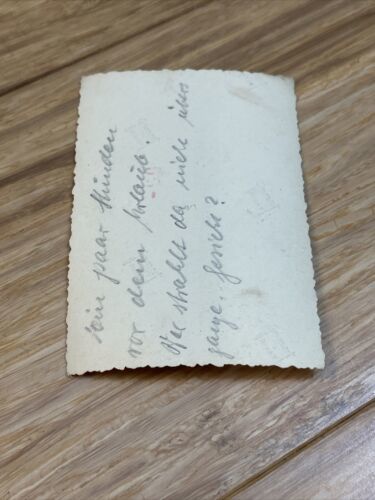 ein paar Stunden
vor dem Urlaub.
Wer strahlt da nicht übers
ganze Gesicht?